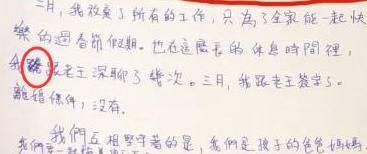 二月,我放棄了所有的工作,只為了全家能一起快
樂的過春節假期。也在這麼長的休息時間裡,
我跟老王深聊了幾次。三月,我跟老王簽字了。
離婚條件,沒有。
我們互相堅守著的是,我們是孩子的爸爸媽媽,
我們